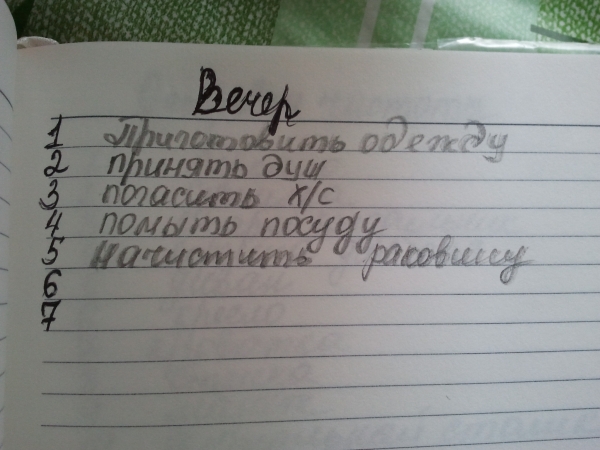 Вечер
1 Приготовить одежду
2 принять душ
3 погасить х/с
4 помыть посуду
5 начистить раковину
6
7